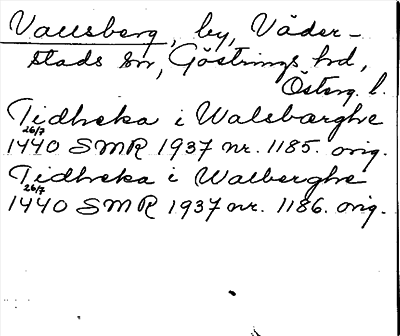 Vallsberg, by, Väder-
stads sn, Göstrings hd,
Österg. l.
Tidheka i Walsbærghe
26/7
1440 SMR 1937 nr. 1185. orig.
Tidheka i Walberghe
26/7
1440 SMR 1937 nr. 1186. orig.